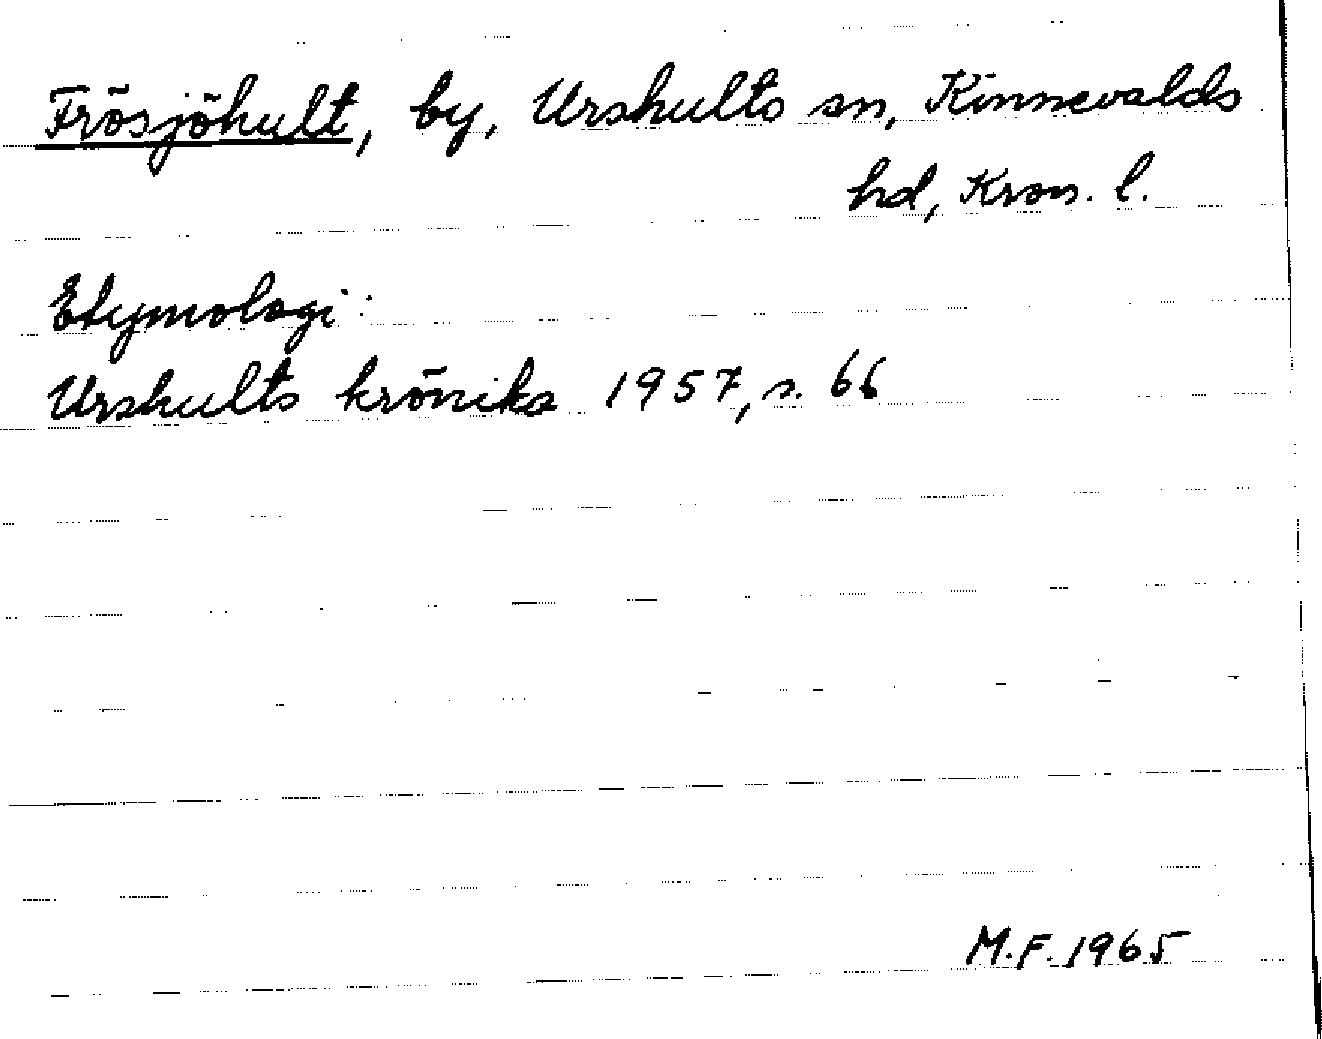 Frösjöhult, by, Urshults sn, Kinnevalds
hd, Kron. l.
Etymologi:
Urshults krönika 1957, s. 66
M.F. 1965